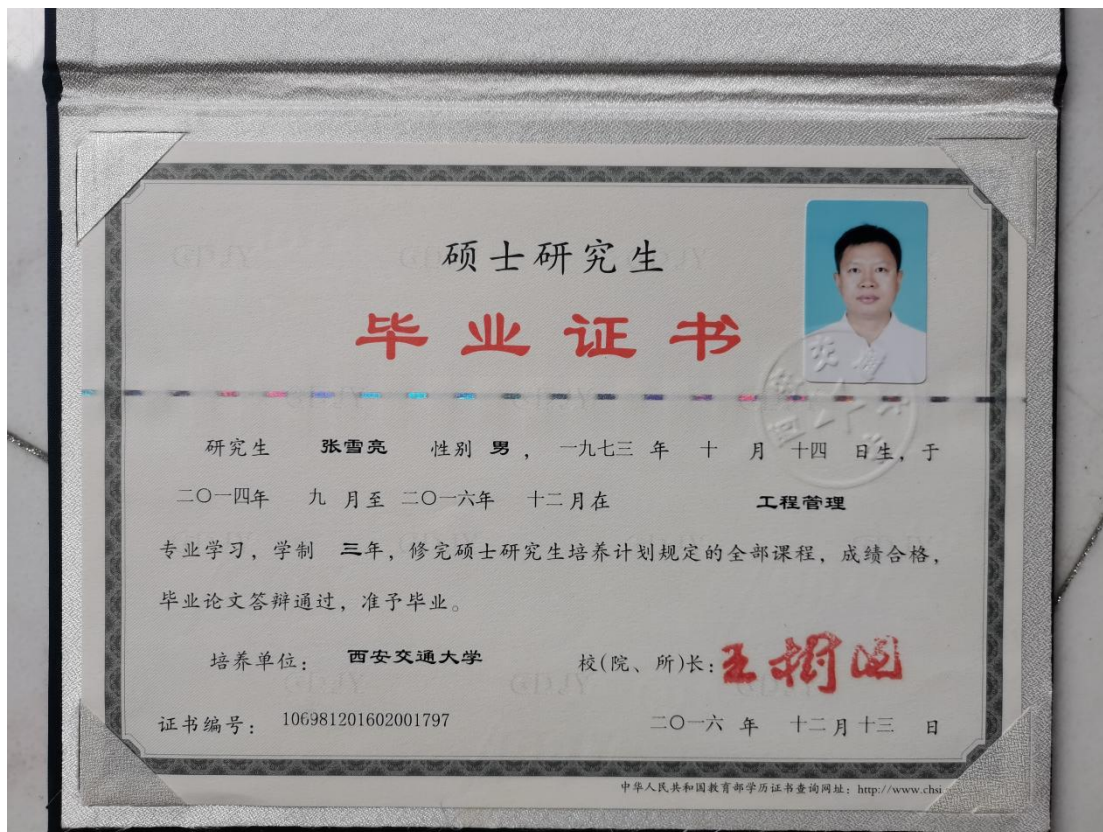 硕士研究生
毕业证书
研究生 张雪亮 性别 男 ， 一九七三 年 十 月 十四 日生，于
二〇一四年 九 月至 二〇一六年 十二月在 工程管理
专业学习，学制 三年，修完硕士研究生培养计划规定的全部课程，成绩合格，
毕业论文答辩通过，准予毕业。
培养单位： 西安交通大学 校(院、所)长： 王树国
证书编号： 106981201602001797 二〇一六 年 十二月十三 日
中华人民共和国教育部学历证书查询网址：http://www.chsi